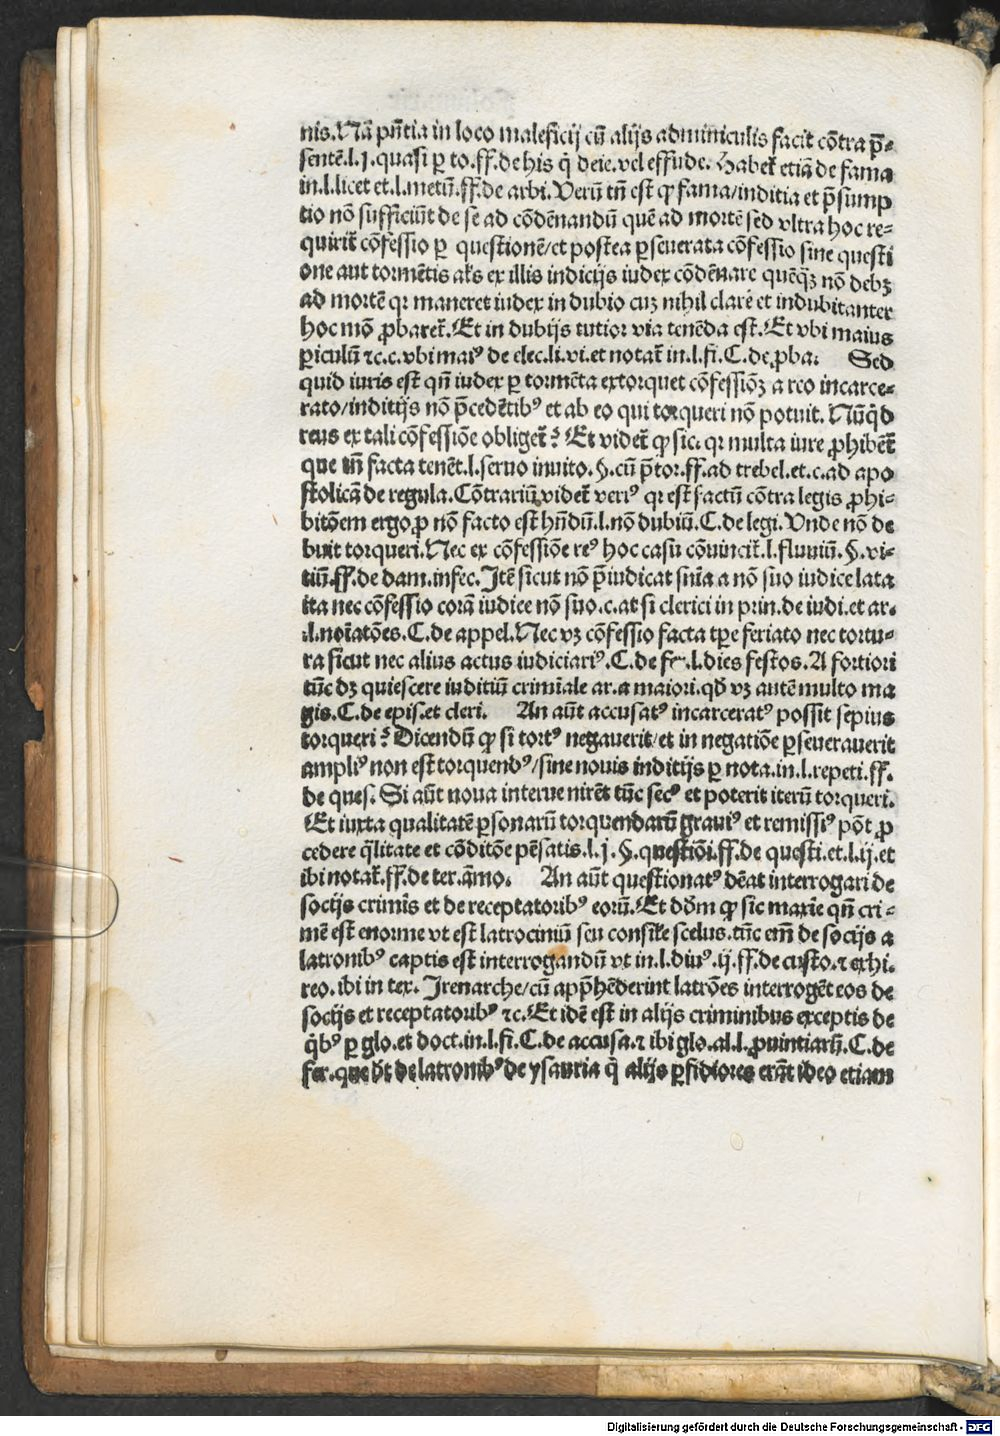 nis. Nā p̄ntia in loco maleficij cū alijs adminiculis facit cōtra p̄-
sentē. l. j. quasi ꝑ to. ff. de his q̄ deie. vel effude. Habet̄ etiā de fama
in. l. licet et. l. metū. ff. de arbi. Verū tn̄ est ꝙ fama/inditia et p̄sump
tio nō sufficiūt de se ad cōdēnandū quē ad mortē sed vltra hoc re-
quirit̄ cōfessio ꝑ questionē/et postea ꝑseuerata cōfessio sine questi
one aut tormētis als ex illis indicijs iudex cōdēnare quēqꝫ nō debꝫ
ad mortē qꝛ maneret iudex in dubio cuꝫ nihil clare et indubitanter
hoc mō ꝓbaret̄. Et in dubijs tutior via tenēda est. Et vbi maius
ꝑiculū ⁊c. c. vbi maiꝰ de elec. li. vi. et notat̄ in. l. fi. C. de ꝓba. Sed
quid iuris est qn̄ iudex ꝑ tormēta extorquet cōfessiōꝫ a reo incarce-
rato/inditijs nō p̄cedētibꝰ et ab eo qui torqueri nō potuit. Nūq̄d
reus ex tali cōfessiōe obliget̄? Et videt̄ ꝙ sic. qꝛ multa iure ꝓhibēt̄
que tn̄ facta tenēt. l. seruo inuito. §. cū p̄tor. ff. ad trebel. et. c. ad apo
stolicā de regula. Cōtrariū videt̄ veriꝰ qꝛ est factū cōtra legis ꝓhi-
bitōem ergo ꝓ nō facto est hn̄dū. l. nō dubiū. C. de legi. Vnde nō de
buit torqueri. Nec ex cōfessiōe reꝰ hoc casu cōuincit̄. l. fluuiū. §. vi-
tiū. ff. de dam. infec. Itē sicut nō p̄iudicat sn̄ia a nō suo iudice lata
ita nec cōfessio corā iudice nō suo. c. at si clerici in prin. de iudi. et ar.
.l. noīatōes. C. de appel. Nec vꝫ cōfessio facta tꝑe feriato nec tortu-
ra sicut nec alius actus iudiciariꝰ. C. de fe. l. dies festos. A fortiori
tūc dꝫ quiescere iuditiū crimīale ar. a maiori. qd̄ vꝫ autē multo ma
gis. C. de epis. et cleri. An aūt accusatꝰ incarceratꝰ possit sepius
torqueri? Dicendū ꝙ si tortꝰ negauerit/et in negatiōe ꝑseuerauerit
ampliꝰ non est torquendꝰ/sine nouis inditijs ꝑ nota. in. l. repeti. ff.
de ques. Si aūt noua interue nirēt tūc secꝰ et poterit iterū torqueri.
Et iuxta qualitatē ꝑsonarū torquendarū grauiꝰ et remissiꝰ pōt ꝓ
cedere q̄litate et cōditōe pēsatis. l. j. §. questiōi. ff. de questi. et. l. ij. et
ibi notat̄. ff. de ter. āmo. An aūt questionatꝰ dēat interrogari de
socijs crimīs et de receptatoribꝰ eorū. Et dd̄m ꝙ sic maxīe qn̄ cri-
mē est enorme vt est latrociniū seu consile scelus. tūc em̄ de socijs a
latronibꝰ captis est interrogandū vt in. l. diuꝰ. ij. ff. de custo. ⁊ exhi.
reo. ibi in tex. Irenarche/cū app̄hēderint latrōes interrogēt eos de
socijs et receptatoribꝰ ⁊c. Et idē est in alijs criminibus exceptis de
q̄bꝰ ꝑ glo. et doct. in. l. fi. C. de accusa. ⁊ ibi glo. al. l. ꝓuintiarū. C. de
fer. que de latronibꝰ de ysauria q̄ alijs ꝑfidiores erāt ideo etiam
Digitalisierung gefördert durch die Deutsche Forschungsgemeinschaft - DFG